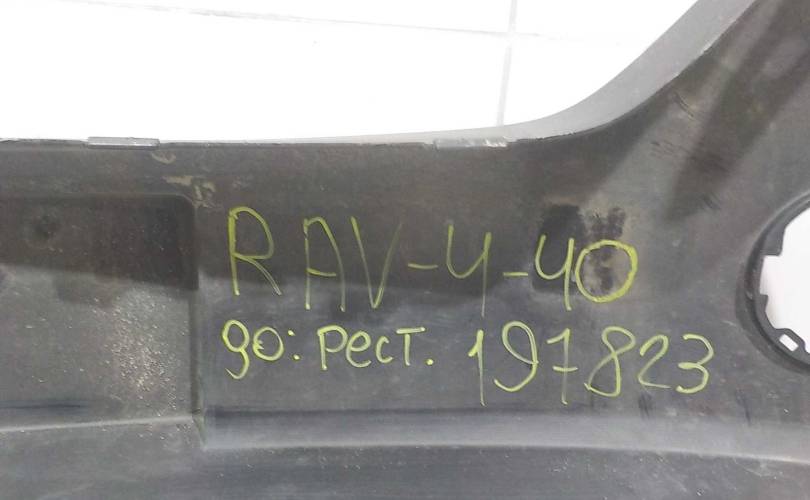 RAV-4-40
до: рест. 197823